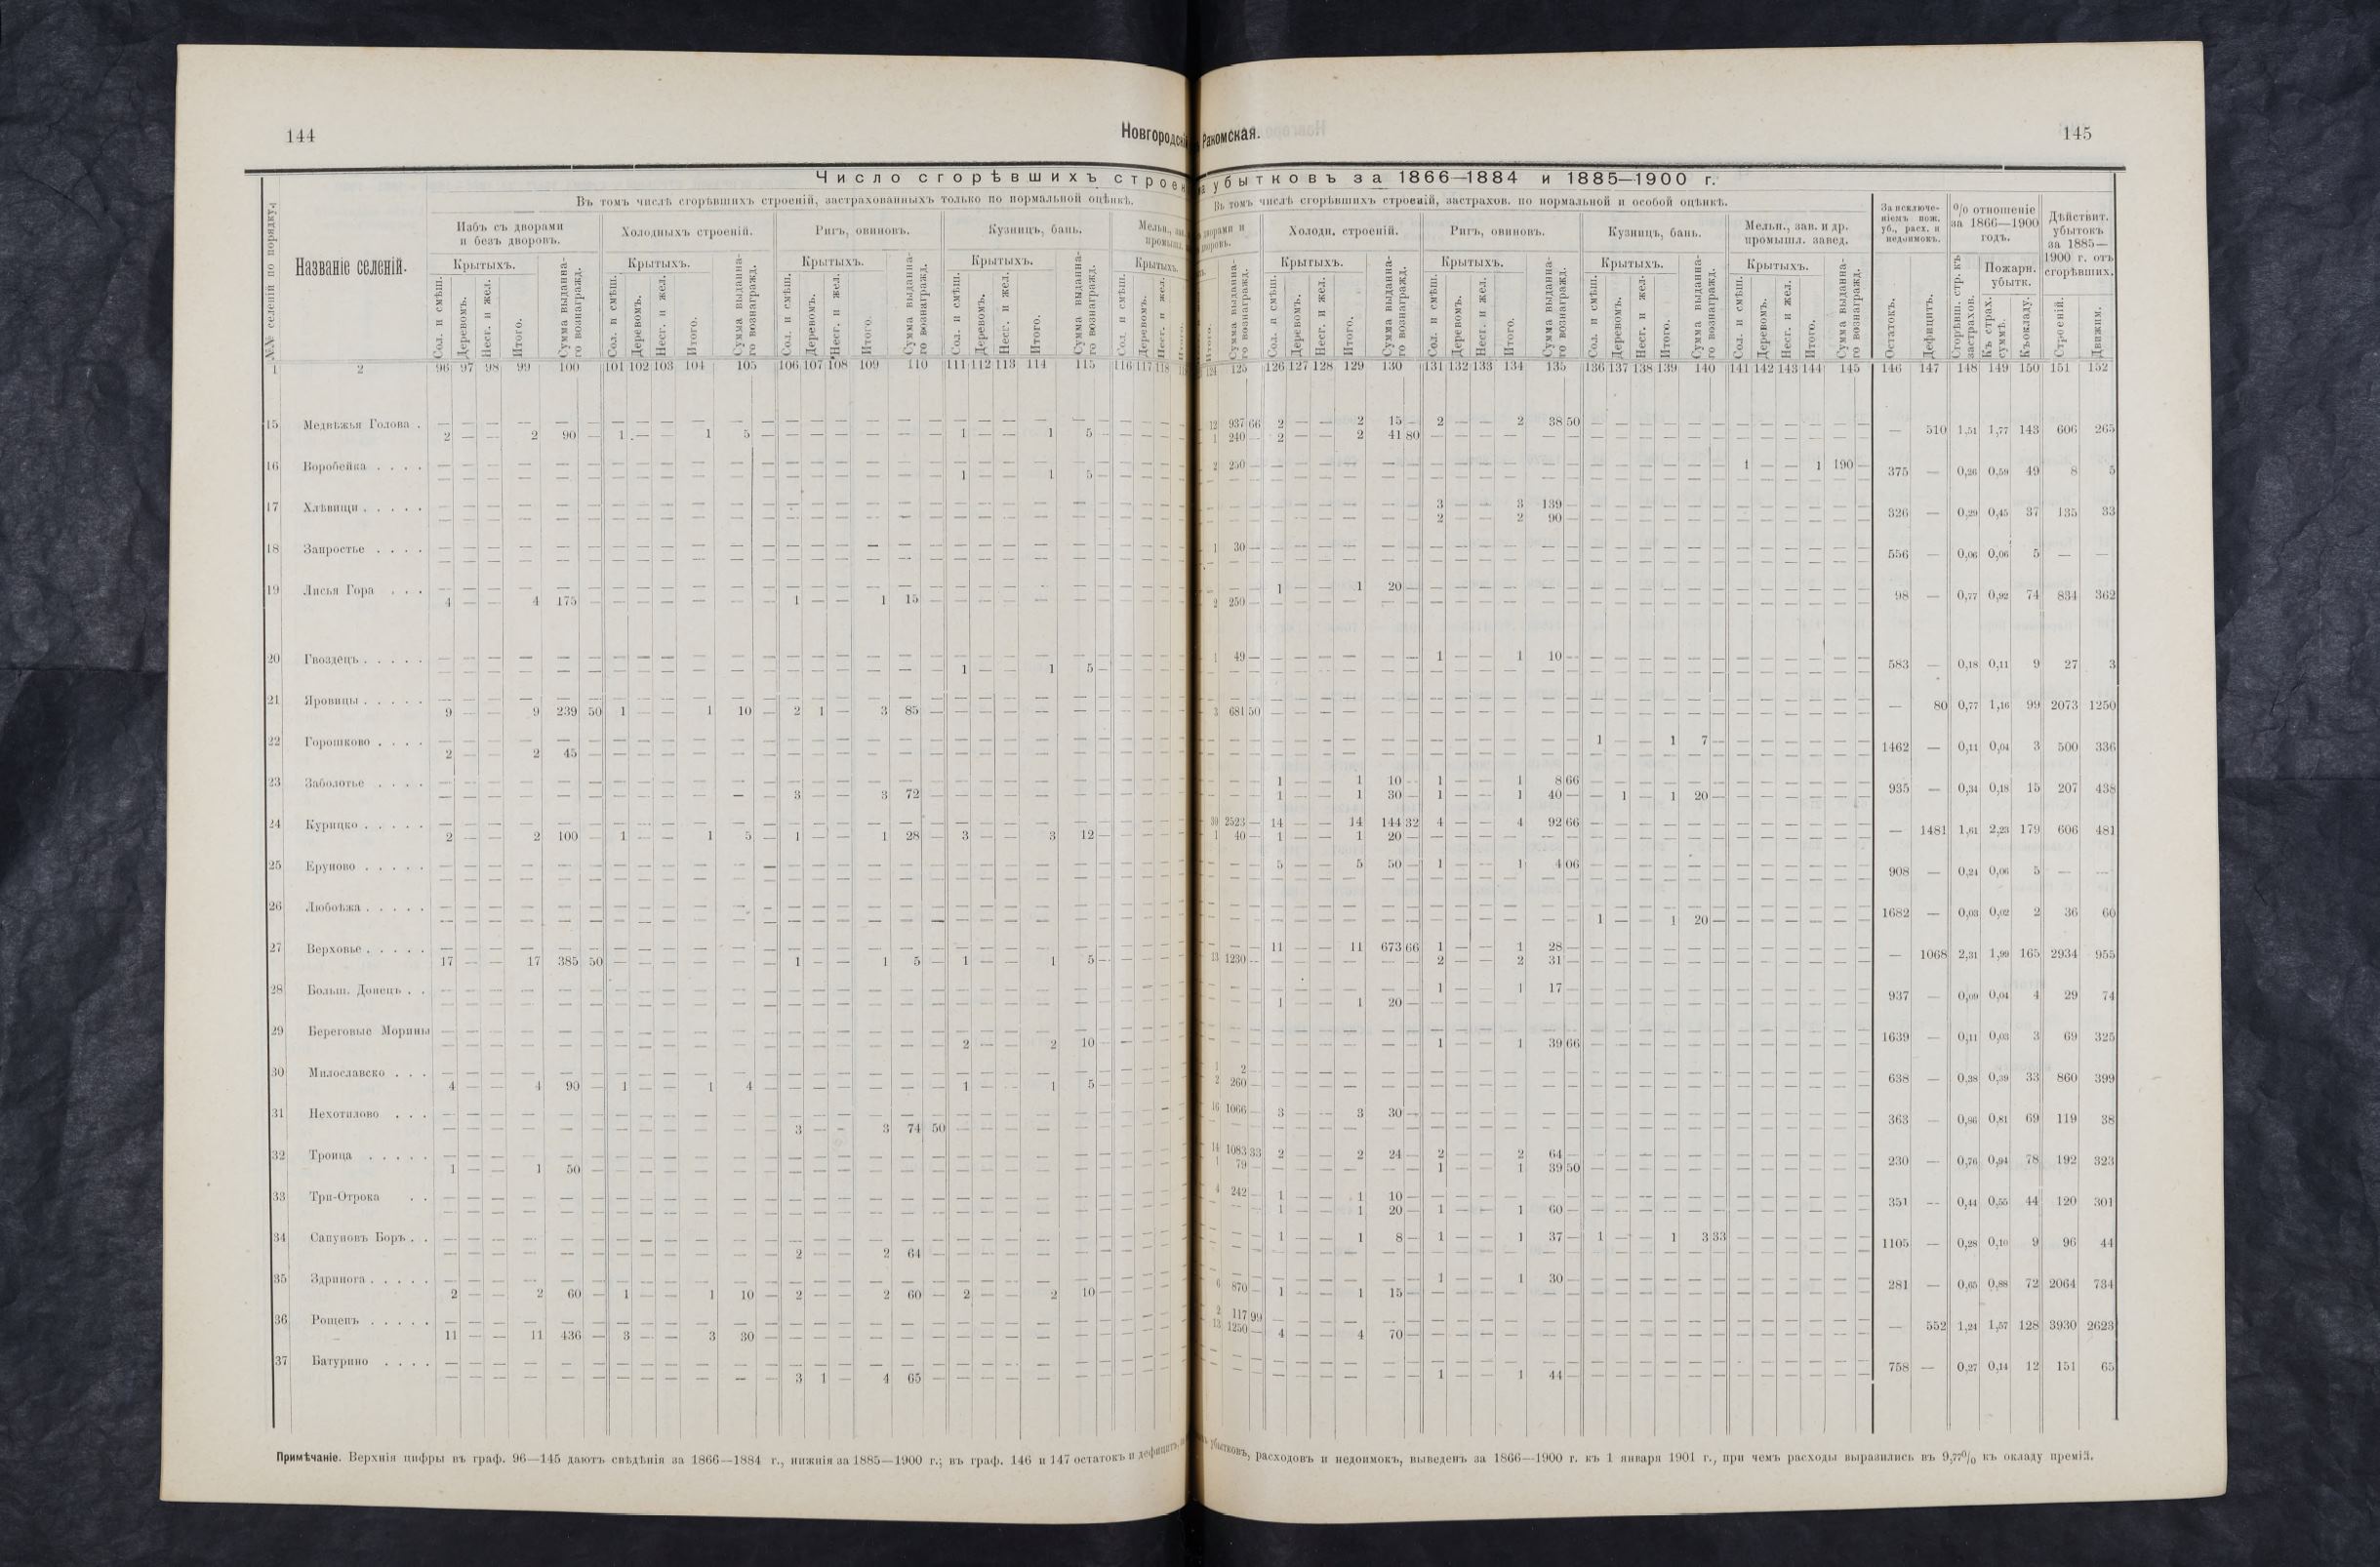 144
Новгородскі
Число сгорѣвшихъ строен
Въ томъ числѣ сгорѣвшихъ строеній, застрахованныхъ только по нормальной оцѣнкѣ.
№№ селеній по порядку.
Названіе селеній.
Избъ съ дворами и безъ дворовъ.
Холодныхъ строеній.
Ригъ, овиновъ.
Кузницъ, бань.
Мельн., зав.
промышл.
Крытыхъ. Крытыхъ. Крытыхъ. Крытыхъ. Крытыхъ.
Сол. и смѣш. Деревомъ. Несг. и жел. Итого. Сумма выданна-го вознагражд.
Сол. и смѣш. Деревомъ. Несг. и жел. Итого. Сумма выданна-го вознагражд.
Сол. и смѣш. Деревомъ. Несг. и жел. Итого. Сумма выданна-го вознагражд.
Сол. и смѣш. Деревомъ. Несг. и жел. Итого. Сумма выданна-го вознагражд.
Сол. и смѣш. Деревомъ. Несг. и жел.
1 2 96 97 98 99 100 101 102 103 104 105 106 107 108 109 110 111 112 113 114 115 116 117 118
15 Медвѣжья Голова .
2 — — 2 90 — 1 — — 1 5 — — — — — — — 1 — — 1 5 —
16 Воробейка . . . .
1 — — 1 5 —
17 Хлѣвищи . . . . .
18 Запростье . . . .
19 Лисья Гора . . .
4 — — 4 175 — — — — — — — 1 — — 1 15 —
20 Гвоздецъ . . . . .
1 — — 1 5 —
21 Яровицы . . . . .
9 — — 9 239 50 1 — — 1 10 — 2 1 — 3 85 —
22 Горошково . . . .
2 — — 2 45 —
23 Заболотье . . . .
3 — — 3 72 —
24 Курицко . . . . .
2 — — 2 100 — 1 — — 1 5 — 1 — — 1 28 — 3 — — 3 12 —
25 Еруново . . . . .
26 Любоѣжа . . . . .
27 Верховье . . . . .
17 — — 17 385 50 — — — — — — 1 — — 1 5 — 1 — — 1 5 —
28 Больш. Донецъ . .
29 Береговые Морины
2 — — 2 10 —
30 Милославско . . .
4 — — 4 90 — 1 — — 1 4 — — — — — — — 1 — — 1 5 —
31 Нехотилово . . .
3 — — 3 74 50
32 Троица . . . . .
1 — — 1 50 —
33 Три-Отрока . .
34 Сапуновъ Боръ . .
2 — — 2 64 —
35 Здринога . . . . .
2 — — 2 60 — 1 — — 1 10 — 2 — — 2 60 — 2 — — 2 10 —
36 Рощепъ . . . . .
11 — — 11 436 — 3 — — 3 30 —
37 Батурино . . . .
3 1 — 4 65 —
Примѣчаніе. Верхнія цифры въ граф. 96—145 даютъ свѣдѣнія за 1866—1884 г., нижнія за 1885—1900 г.; въ граф. 146 и 147 остатокъ и дефицитъ,
Ракомская.
145
убытковъ за 1866—1884 и 1885—1900 г.
Въ томъ числѣ сгорѣвшихъ строеній, застрахов. по нормальной и особой оцѣнкѣ.
дворами и
дворовъ.
Холодн. строеній.
Ригъ, овиновъ.
Кузницъ, бань.
Мельн., зав. и др. промышл. завед.
За исключе-ніемъ пож. уб., расх. и недоимокъ.
% отношеніе за 1866—1900 годъ.
Дѣйствит. убытокъ за 1885—1900 г. отъ сгорѣвших.
Крытыхъ. Крытыхъ. Крытыхъ. Крытыхъ.
Пожарн. убытк.
Итого. Сумма выданна-го вознагражд.
Сол. и смѣш. Деревомъ. Несг. и жел. Итого. Сумма выданна-го вознагражд.
Сол. и смѣш. Деревомъ. Несг. и жел. Итого. Сумма выданна-го вознагражд.
Сол. и смѣш. Деревомъ. Несг. и жел. Итого. Сумма выданна-го вознагражд.
Сол. и смѣш. Деревомъ. Несг. и жел. Итого. Сумма выданна-го вознагражд.
Остатокъ. Дефицитъ. Сгорѣвш. стр. къ застрахов. Къ страх. суммѣ. Къ окладу. Строеній. Движим.
124 125 126 127 128 129 130 131 132 133 134 135 136 137 138 139 140 141 142 143 144 145 146 147 148 149 150 151 152
12 937 66 2 — — 2 15 — 2 — — 2 38 50
1 240 — 2 — — 2 41 80
— 510 1,51 1,77 143 606 265
2 250 — 1 — — 1 190 —
375 — 0,26 0,59 49 8 5
3 — — 3 139 —
2 — — 2 90 —
326 — 0,29 0,45 37 135 33
1 30 —
556 — 0,06 0,06 5 — —
1 — — 1 20 —
2 250 —
98 — 0,77 0,92 74 834 362
1 49 — 1 — — 1 10 —
583 — 0,18 0,11 9 27 3
3 681 50
— 80 0,77 1,16 99 2073 1250
1 — — 1 7 —
1462 — 0,11 0,04 3 500 336
1 — — 1 10 — 1 — — 1 8 66
1 — — 1 30 — 1 — — 1 40 — — 1 — 1 20 —
935 — 0,34 0,18 15 207 438
30 2523 — 14 — — 14 144 32 4 — — 4 92 66
1 40 — 1 — — 1 20 —
— 1481 1,61 2,23 179 606 481
5 — — 5 50 — 1 — — 1 4 06
908 — 0,24 0,06 5 — —
1 — — 1 20 —
1682 — 0,03 0,02 2 36 60
11 — — 11 673 66 1 — — 1 28 —
13 1230 — — — — — — — 2 — — 2 31 —
— 1068 2,31 1,99 165 2934 955
1 — — 1 17 —
1 — — 1 20 —
937 — 0,09 0,04 4 29 74
1 — — 1 39 66
1639 — 0,11 0,03 3 69 325
1 2 —
2 260 —
638 — 0,38 0,39 33 860 399
16 1066 — 3 — — 3 30 —
363 — 0,96 0,81 69 119 38
14 1083 33 2 — — 2 24 — 2 — — 2 64 —
1 79 — — — — — — — 1 — — 1 39 50
230 — 0,76 0,94 78 192 323
4 242 — 1 — — 1 10 —
1 — — 1 20 — 1 — — 1 60 —
351 — 0,44 0,55 44 120 301
1 — — 1 8 — 1 — — 1 37 — 1 — — 1 3 33
1105 — 0,28 0,10 9 96 44
1 — — 1 30 —
6 870 — 1 — — 1 15 —
281 — 0,65 0,88 72 2064 734
2 117 99
13 1250 — 4 — — 4 70 —
— 552 1,24 1,57 128 3930 2623
1 — — 1 44 —
758 — 0,27 0,14 12 151 65
убытковъ, расходовъ и недоимокъ, выведенъ за 1866—1900 г. къ 1 января 1901 г., при чемъ расходы выразились въ 9,77% къ окладу премій.